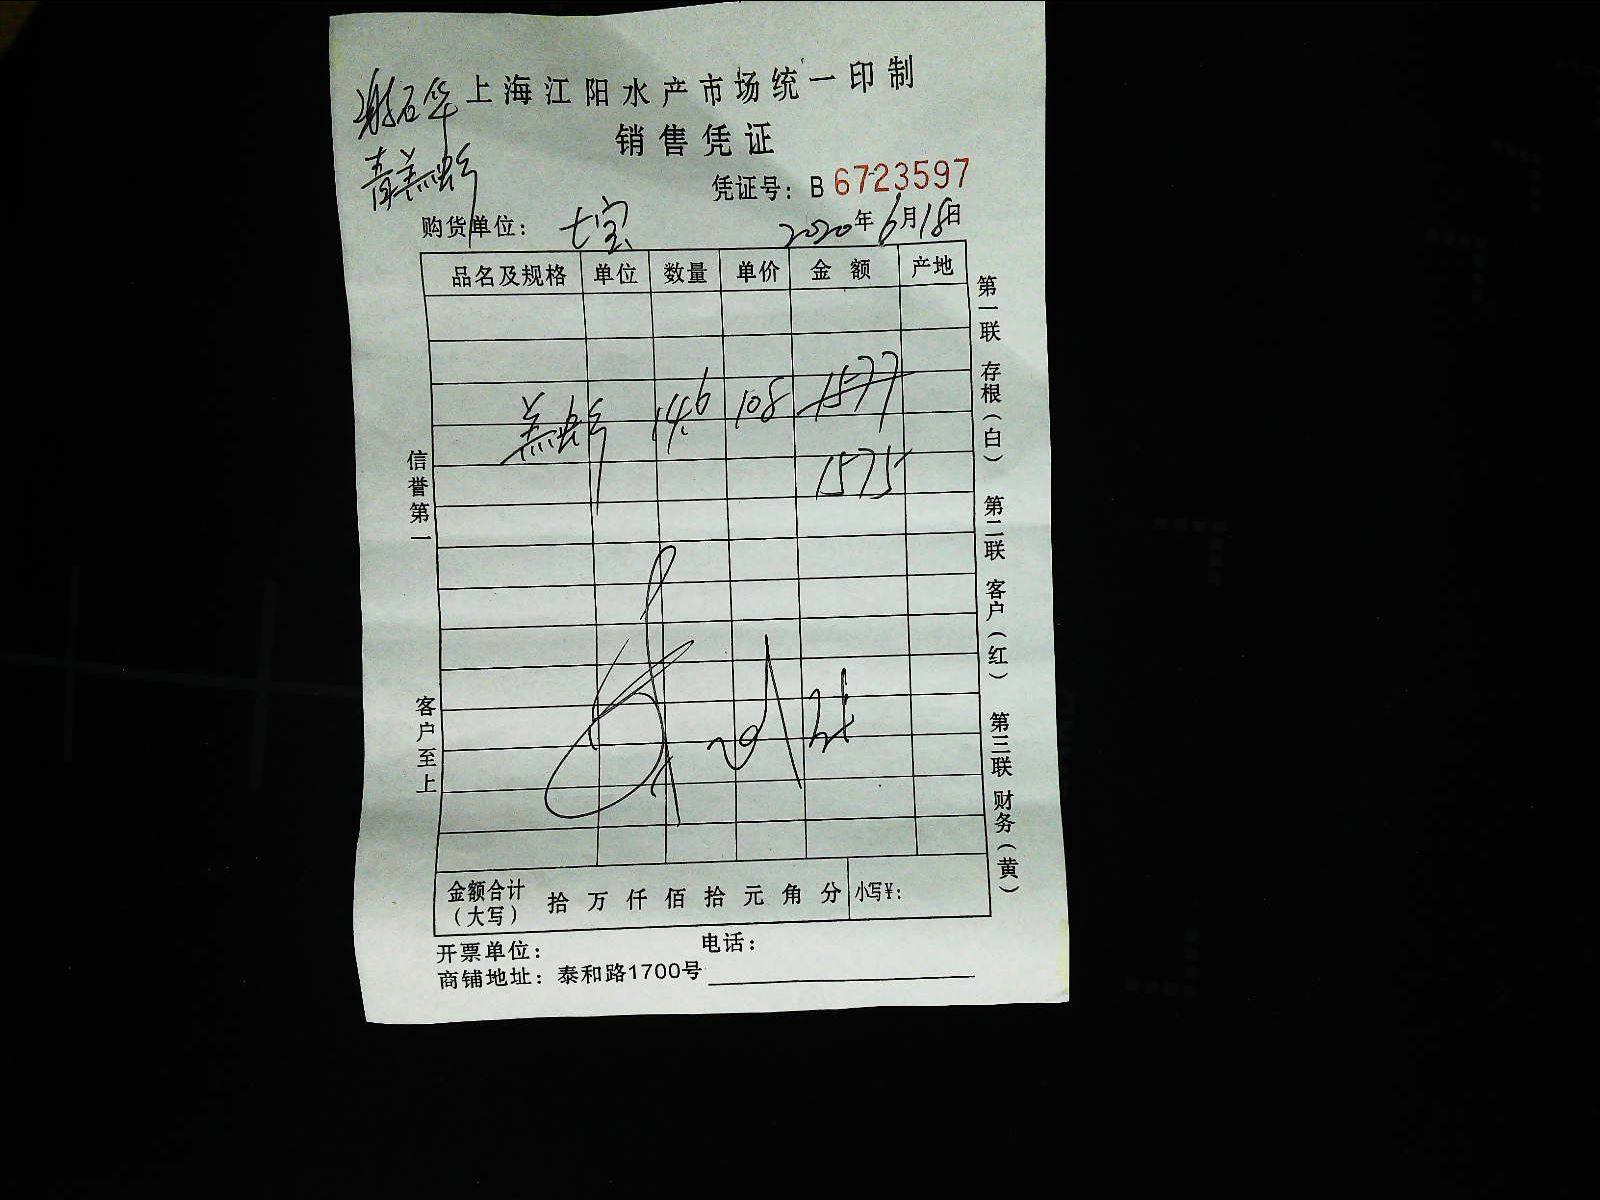 谢石华
青羔蟹
上海江阳水产市场统一印制
销售凭证
凭证号：B 6723597
购货单位： 七宝 2020年6月18日
品名及规格 单位 数量 单价 金额 产地
羔蟹 14.6 108 1577
1575
信誉第一
客户至上
第一联 存根（白） 第二联 客户（红） 第三联 财务（黄）
金额合计（大写） 拾 万 仟 佰 拾 元 角 分 小写¥：
开票单位： 电话：
商铺地址：泰和路1700号